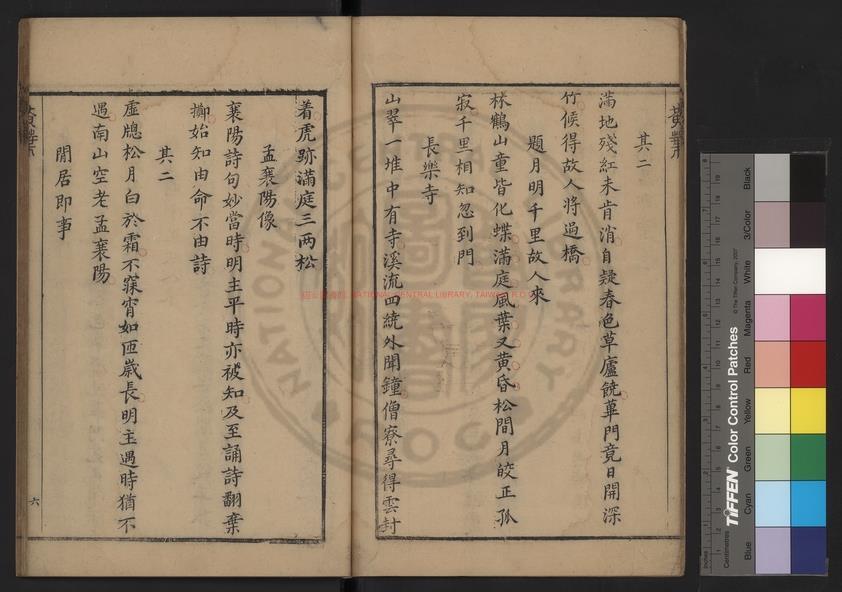 其二
滿地殘紅未肯消自疑春色草廬饒蓽門竟日開深
竹候得故人將過橋
題月明千里故人來
林鶴山童皆化蝶滿庭風葉又黃昏松間月皎正孤
寂千里相知忽到門
長樂寺
山翠一堆中有寺溪流四繞外聞鐘僧寮尋得雲封
着虎跡滿庭三兩松
孟襄陽像
襄陽詩句妙當時明主平時亦被知及至誦詩翻棄
擲始知由命不由詩
其二
虛牕松月白於霜不寐宵如匝歲長明主遇時猶不
遇南山空老孟襄陽
閒居即事
六
NATIONAL CENTRAL LIBRARY, TAIWAN, R.O.C.
Black
3/Color
White
Magenta
Red
Yellow
Green
Cyan
Blue
© The Tiffen Company, 2007
TIFFEN Color Control Patches
Centimetres
Inches